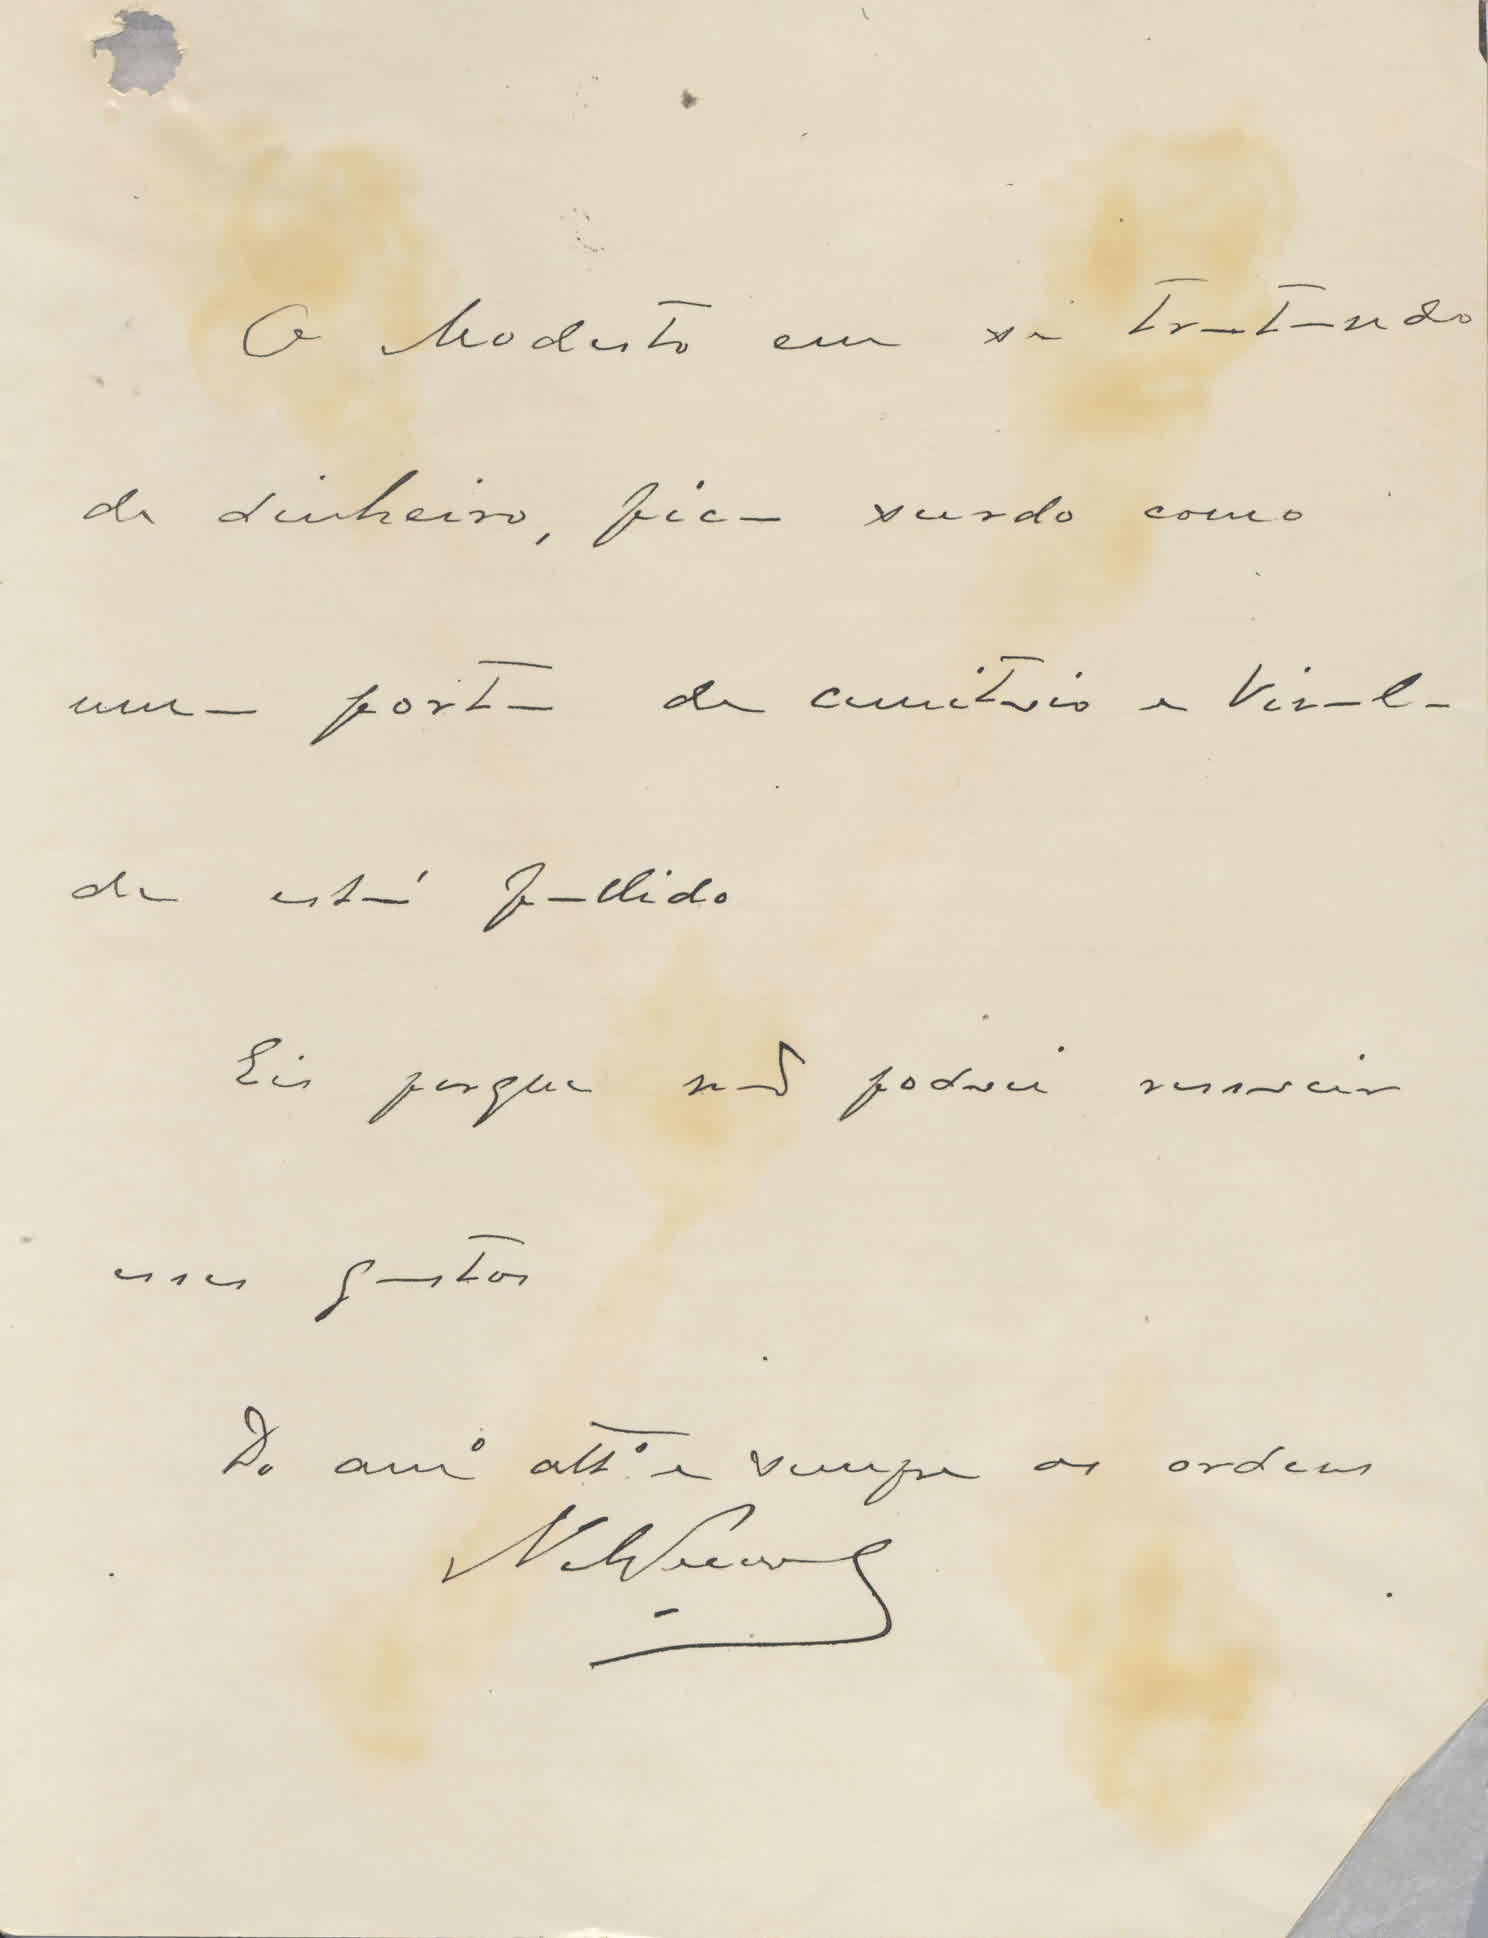 O Modesto em se tratando
de dinheiro, fica surdo como
uma porta de cemiterio e Viral-
de está fallido
Eis porque não poderei ressarcir
esses gastos
Do amº attº e sempre as ordens